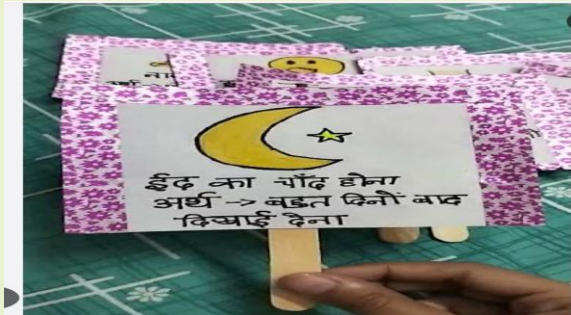 ईद का चाँद होना
अर्थ -> बहुत दिनों बाद
दिखाई देना